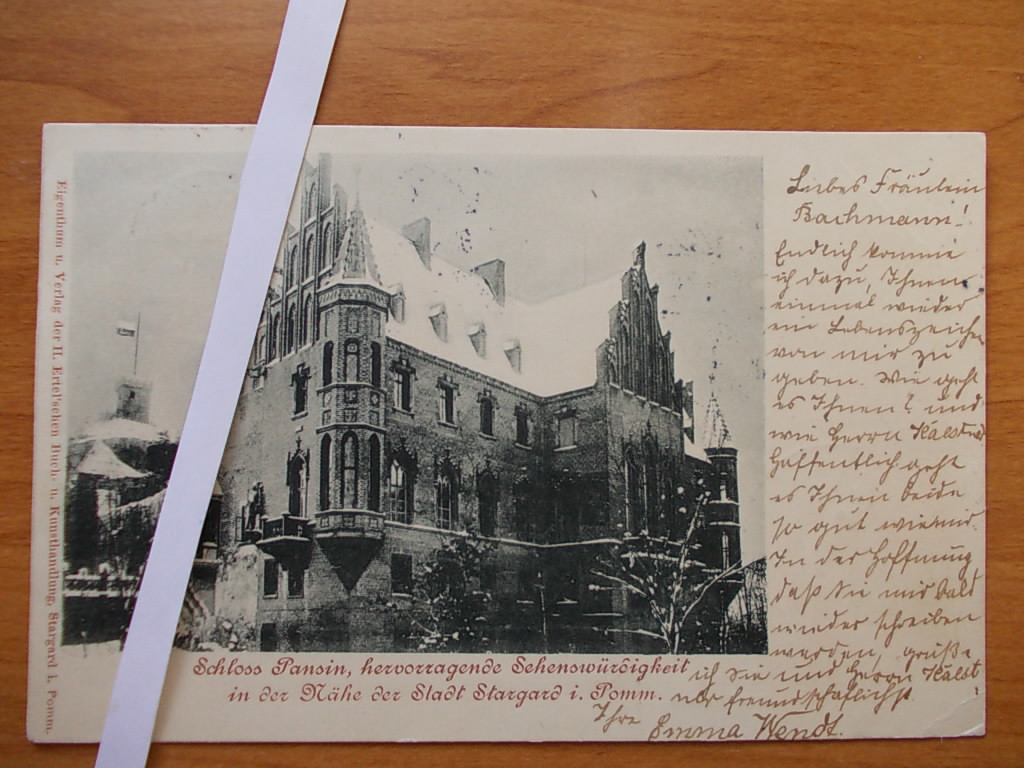 Eigenthum u. Verlag der H. Ertel'schen Buch- u. Kunsthandlung, Stargard i. Pomm.
Schloss Pansin, hervorragende Sehenswürdigkeit
in der Nähe der Stadt Stargard i. Pomm.
Liebes Fräulein
Bachmann!
Endlich komme
ich dazu, Ihnen
einmal wieder
ein Lebenszeichen
von mir zu
geben. Wie geht
es Ihnen? und
wie Herrn
Hoffentlich geht
es Ihnen beide
so gut wie mir.
In der Hoffnung
daß Sie mir bald
wieder schreiben
werden, grüße
ich Sie und Herrn
freundschaftlichst
Ihre Emma Wendt.